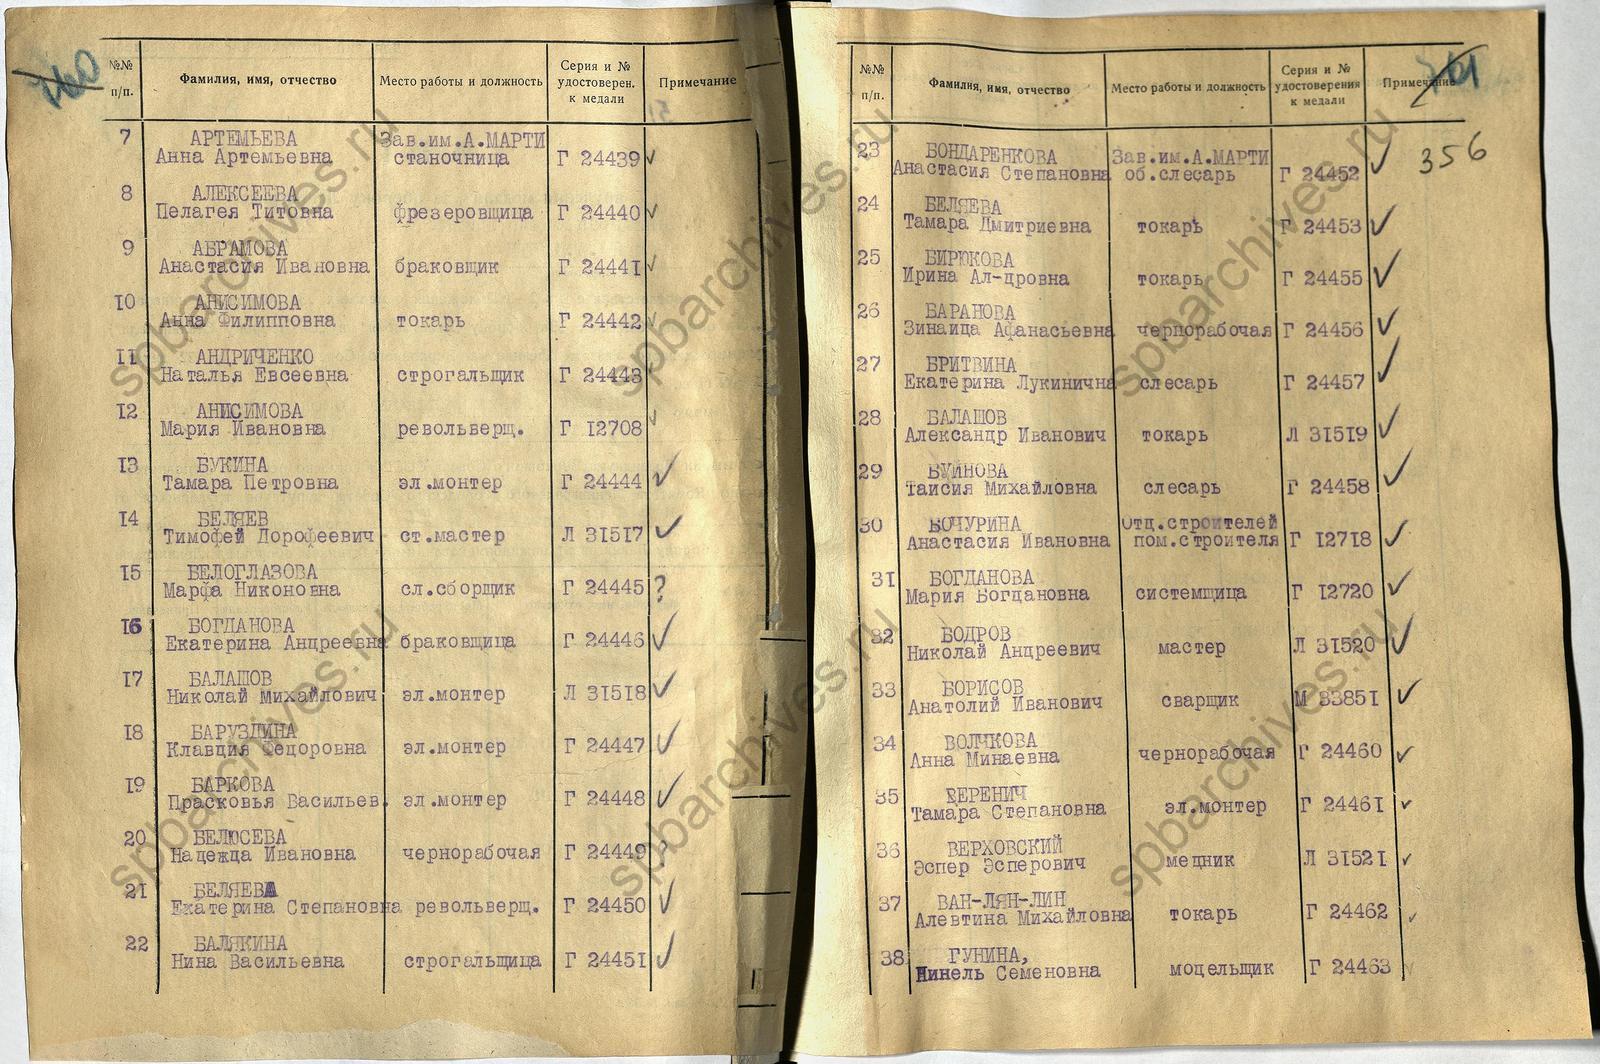 №№ п/п. Фамилия, имя, отчество Место работы и должность Серия и № удостоверен. к медали Примечание
7 АРТЕМЬЕВА Зав.им.А.МАРТИ
Анна Артемьевна станочница Г 24439
8 АЛЕКСЕЕВА
Пелагея Титовна фрезеровщица Г 24440
9 АБРАМОВА
Анастасия Ивановна браковщик Г 24441
10 АНИСИМОВА
Анна Филипповна токарь Г 24442
11 АНДРИЧЕНКО
Наталья Евсеевна строгальщик Г 24443
12 АНИСИМОВА
Мария Ивановна револьверщ. Г 12708
13 БУКИНА
Тамара Петровна эл.монтер Г 24444
14 БЕЛЯЕВ
Тимофей Дорофеевич ст.мастер Л 31517
15 БЕЛОГЛАЗОВА
Марфа Никоновна сл.сборщик Г 24445 ?
16 БОГДАНОВА
Екатерина Андреевна браковщица Г 24446
17 БАЛАШОВ
Николай Михайлович эл.монтер Л 31518
18 БАРУЗДИНА
Клавдия Федоровна эл.монтер Г 24447
19 БАРКОВА
Прасковья Васильев. эл.монтер Г 24448
20 БЕЛЮСЕВА
Надежда Ивановна чернорабочая Г 24449
21 БЕЛЯЕВА
Екатерина Степановна револьверщ. Г 24450
22 БАЛЯКИНА
Нина Васильевна строгальщица Г 24451
№№ п/п. Фамилия, имя, отчество Место работы и должность Серия и № удостоверения к медали Примечание
356
23 БОНДАРЕНКОВА Зав.им.А.МАРТИ
Анастасия Степановна об.слесарь Г 24452
24 БЕЛЯЕВА
Тамара Дмитриевна токарь Г 24453
25 БИРЮКОВА
Ирина Ал-дровна токарь Г 24455
26 БАРАНОВА
Зинаида Афанасьевна чернорабочая Г 24456
27 БРИТВИНА
Екатерина Лукинична слесарь Г 24457
28 БАЛАШОВ
Александр Иванович токарь Л 31519
29 БУЙНОВА
Таисия Михайловна слесарь Г 24458
30 БОЧУРИНА Отд.строителей
Анастасия Ивановна пом.строителя Г 12718
31 БОГДАНОВА
Мария Богдановна системщица Г 12720
32 БОДРОВ
Николай Андреевич мастер Л 31520
33 БОРИСОВ
Анатолий Иванович сварщик М 33851
34 ВОЛЧКОВА
Анна Минаевна чернорабочая Г 24460
35 ВЕРЕНИЧ
Тамара Степановна эл.монтер Г 24461
36 ВЕРХОВСКИЙ
Эспер Эсперович медник Л 31521
37 ВАН-ЛЯН-ЛИН
Алевтина Михайловна токарь Г 24462
38 ГУНИНА,
Нинель Семеновна модельщик Г 24463
spbarchives.ru
spbarchives.ru
spbarchives.ru
spbarchives.ru
spbarchives.ru
spbarchives.ru